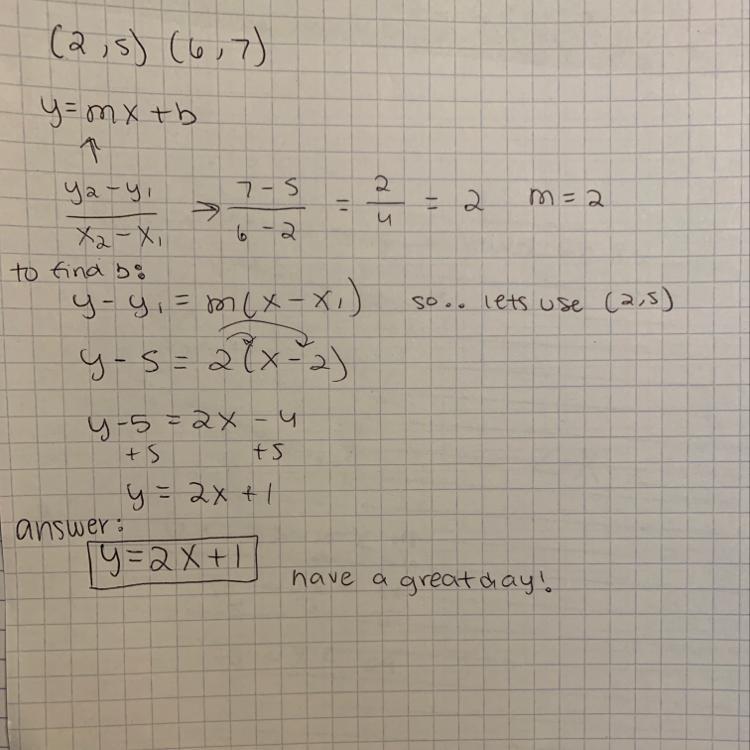 (2,5) (6,7)
y=mx+b
↑
y₂-y₁/x₂-x₁ → 7-5/6-2 = 2/4 = 2 m=2
to find b:
y-y₁=m(x-x₁) so.. lets use (2,5)
y-5=2(x-2)
y-5=2x-4
+5 +5
y=2x+1
answer:
y=2x+1
have a great day!